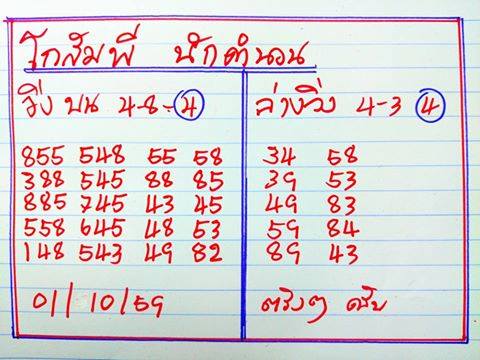 โกสัมพี นักคำนวน
วิ่ง บน 4-8-4
855 548 55 58
388 545 88 85
885 745 43 45
558 645 48 53
148 543 49 82
01/10/59
ล่างวิ่ง 4-3 4
34 58
39 53
49 83
59 84
89 43
ตรงๆ ครับ